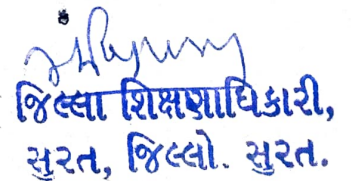 જિલ્લા શિક્ષણાધિકારી,
સુરત, જિલ્લો. સુરત.